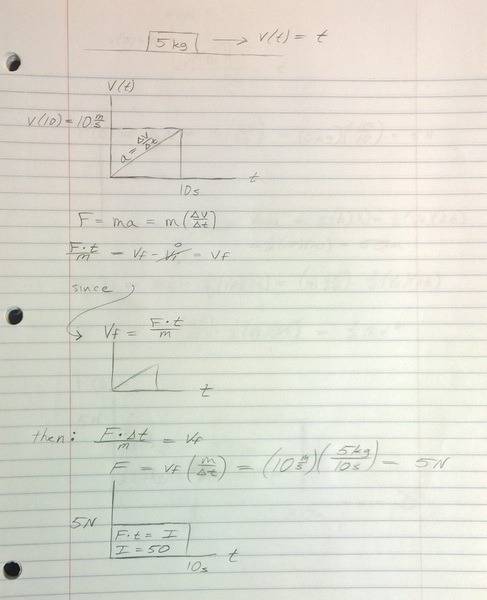 5 kg → v(t) = t
V(t)
V(10) = 10 m/s
a = ΔV/Δt
10s t
F = ma = m(ΔV/Δt)
F·t/m = Vf - Vi⁰ = VF
since
Vf = F·t/m
t
then: F·Δt/m = Vf
F = Vf (m/Δt) = (10 m/s)(5kg/10s) = 5N
5N
F·t = I
I = 50
10s t